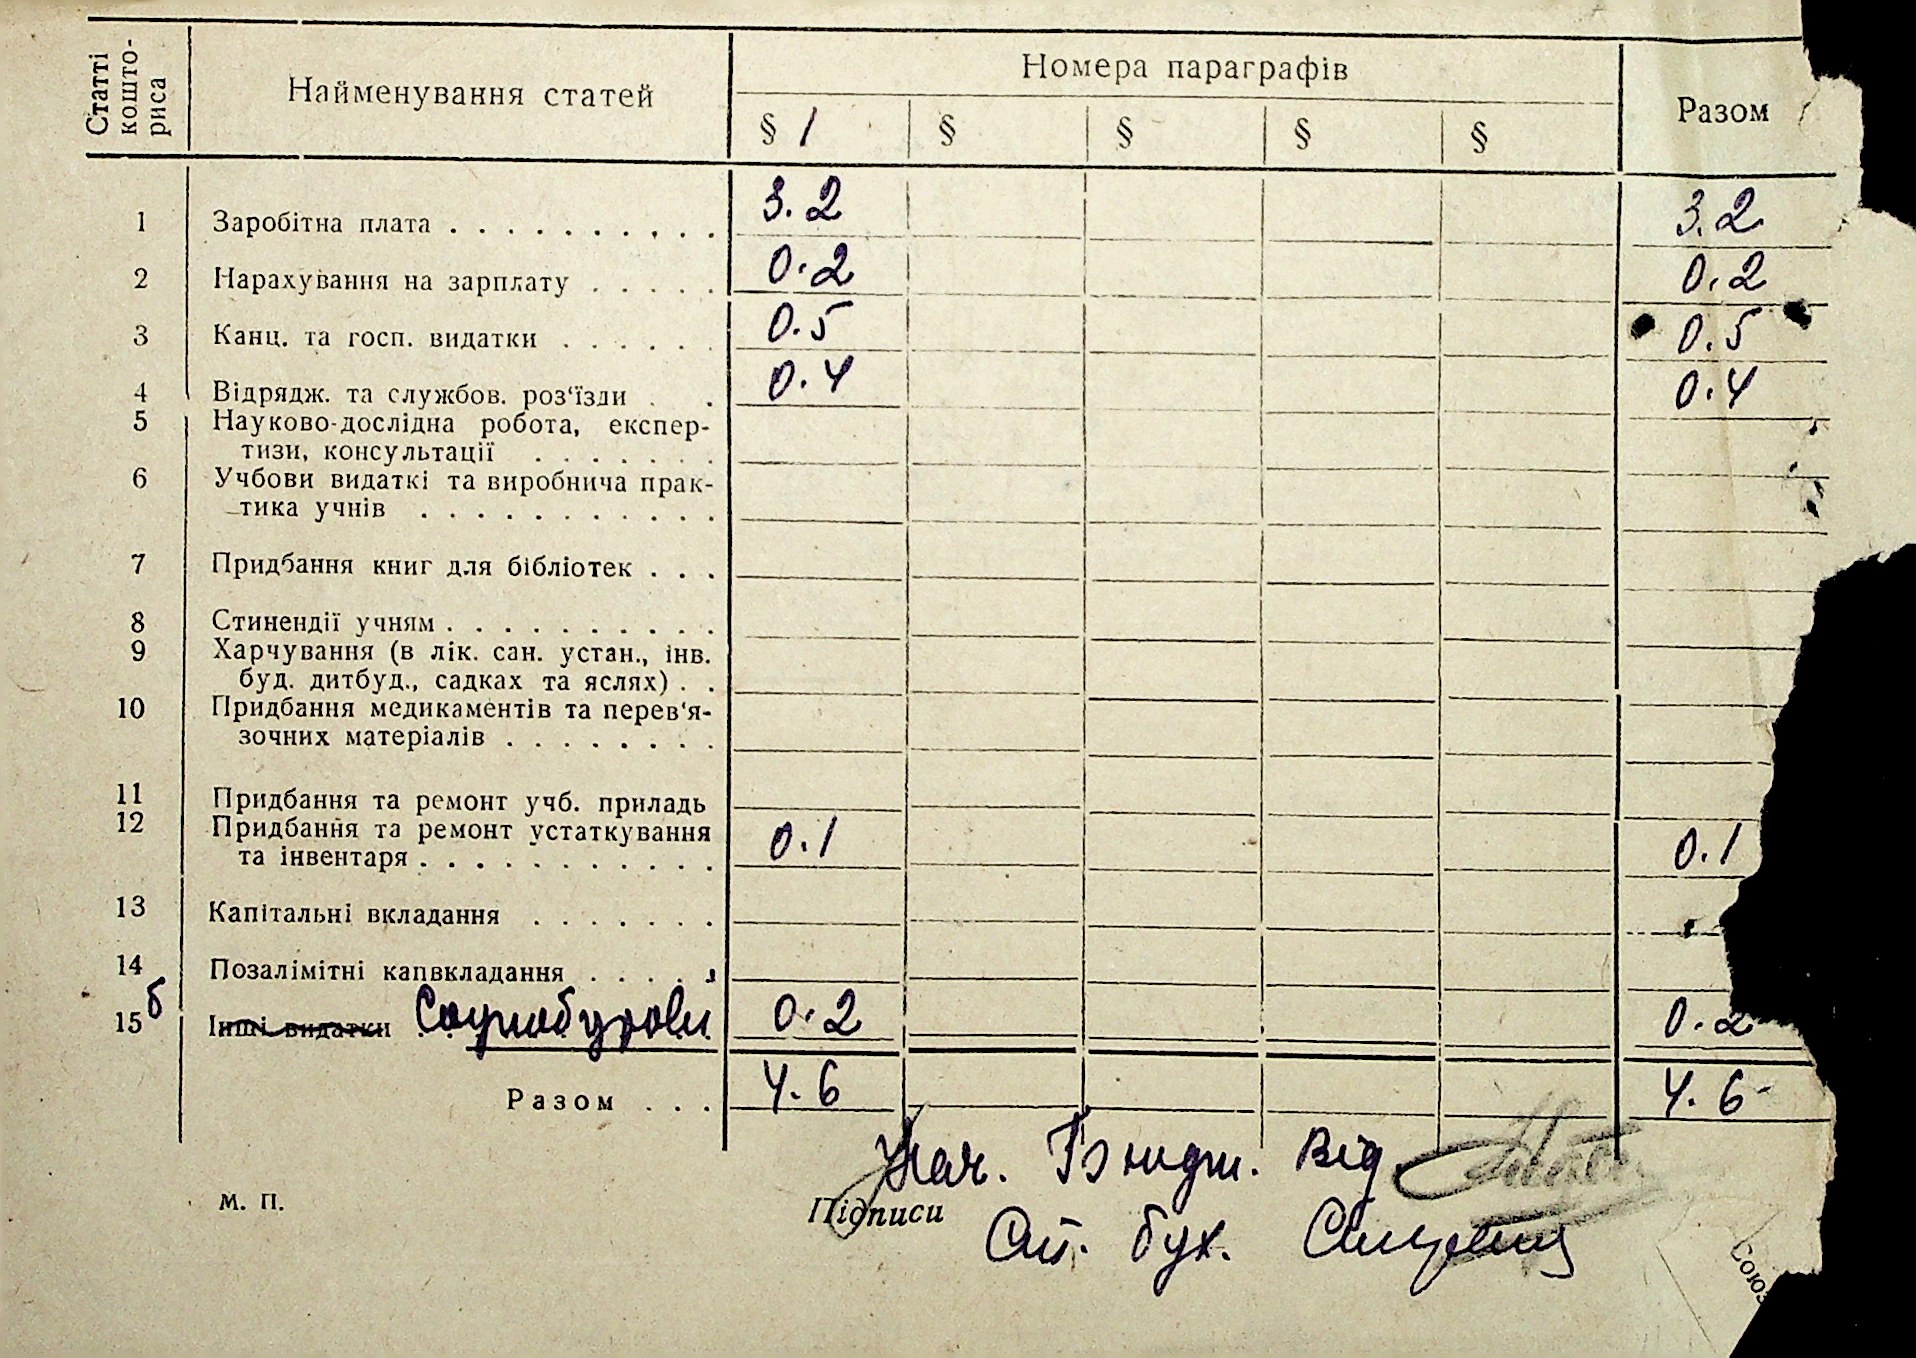 Статті кошто-риса
Найменування статей
Номера параграфів
Разом
§ 1 § § § §
1 Заробітна плата . . . . . . . . . . 3.2 3.2
2 Нарахування на зарплату . . . . . 0.2 0.2
3 Канц. та госп. видатки . . . . . . 0.5 0.5
4 Відрядж. та службов. роз‘їзди . . 0.4 0.4
5 Науково-дослідна робота, експер-
тизи, консультації . . . . . . .
6 Учбови видаткі та виробнича прак-
тика учнів . . . . . . . . . . .
7 Придбання книг для бібліотек . . .
8 Стинендії учням . . . . . . . . . .
9 Харчування (в лік. сан. устан., інв.
буд. дитбуд., садках та яслях) . .
10 Придбання медикаментів та перев‘я-
зочних матеріалів . . . . . . . .
11 Придбання та ремонт учб. приладь
12 Придбання та ремонт устаткування
та інвентаря . . . . . . . . . . . 0.1 0.1
13 Капітальні вкладання . . . . . . .
14 Позалімітні капвкладання . . . . .
15б Інші видатки 0.2 0.2
Разом . . . 4.6 4.6
Нач. Бюдж. Від.
м. п. Підписи
Ст. бух.
Союз